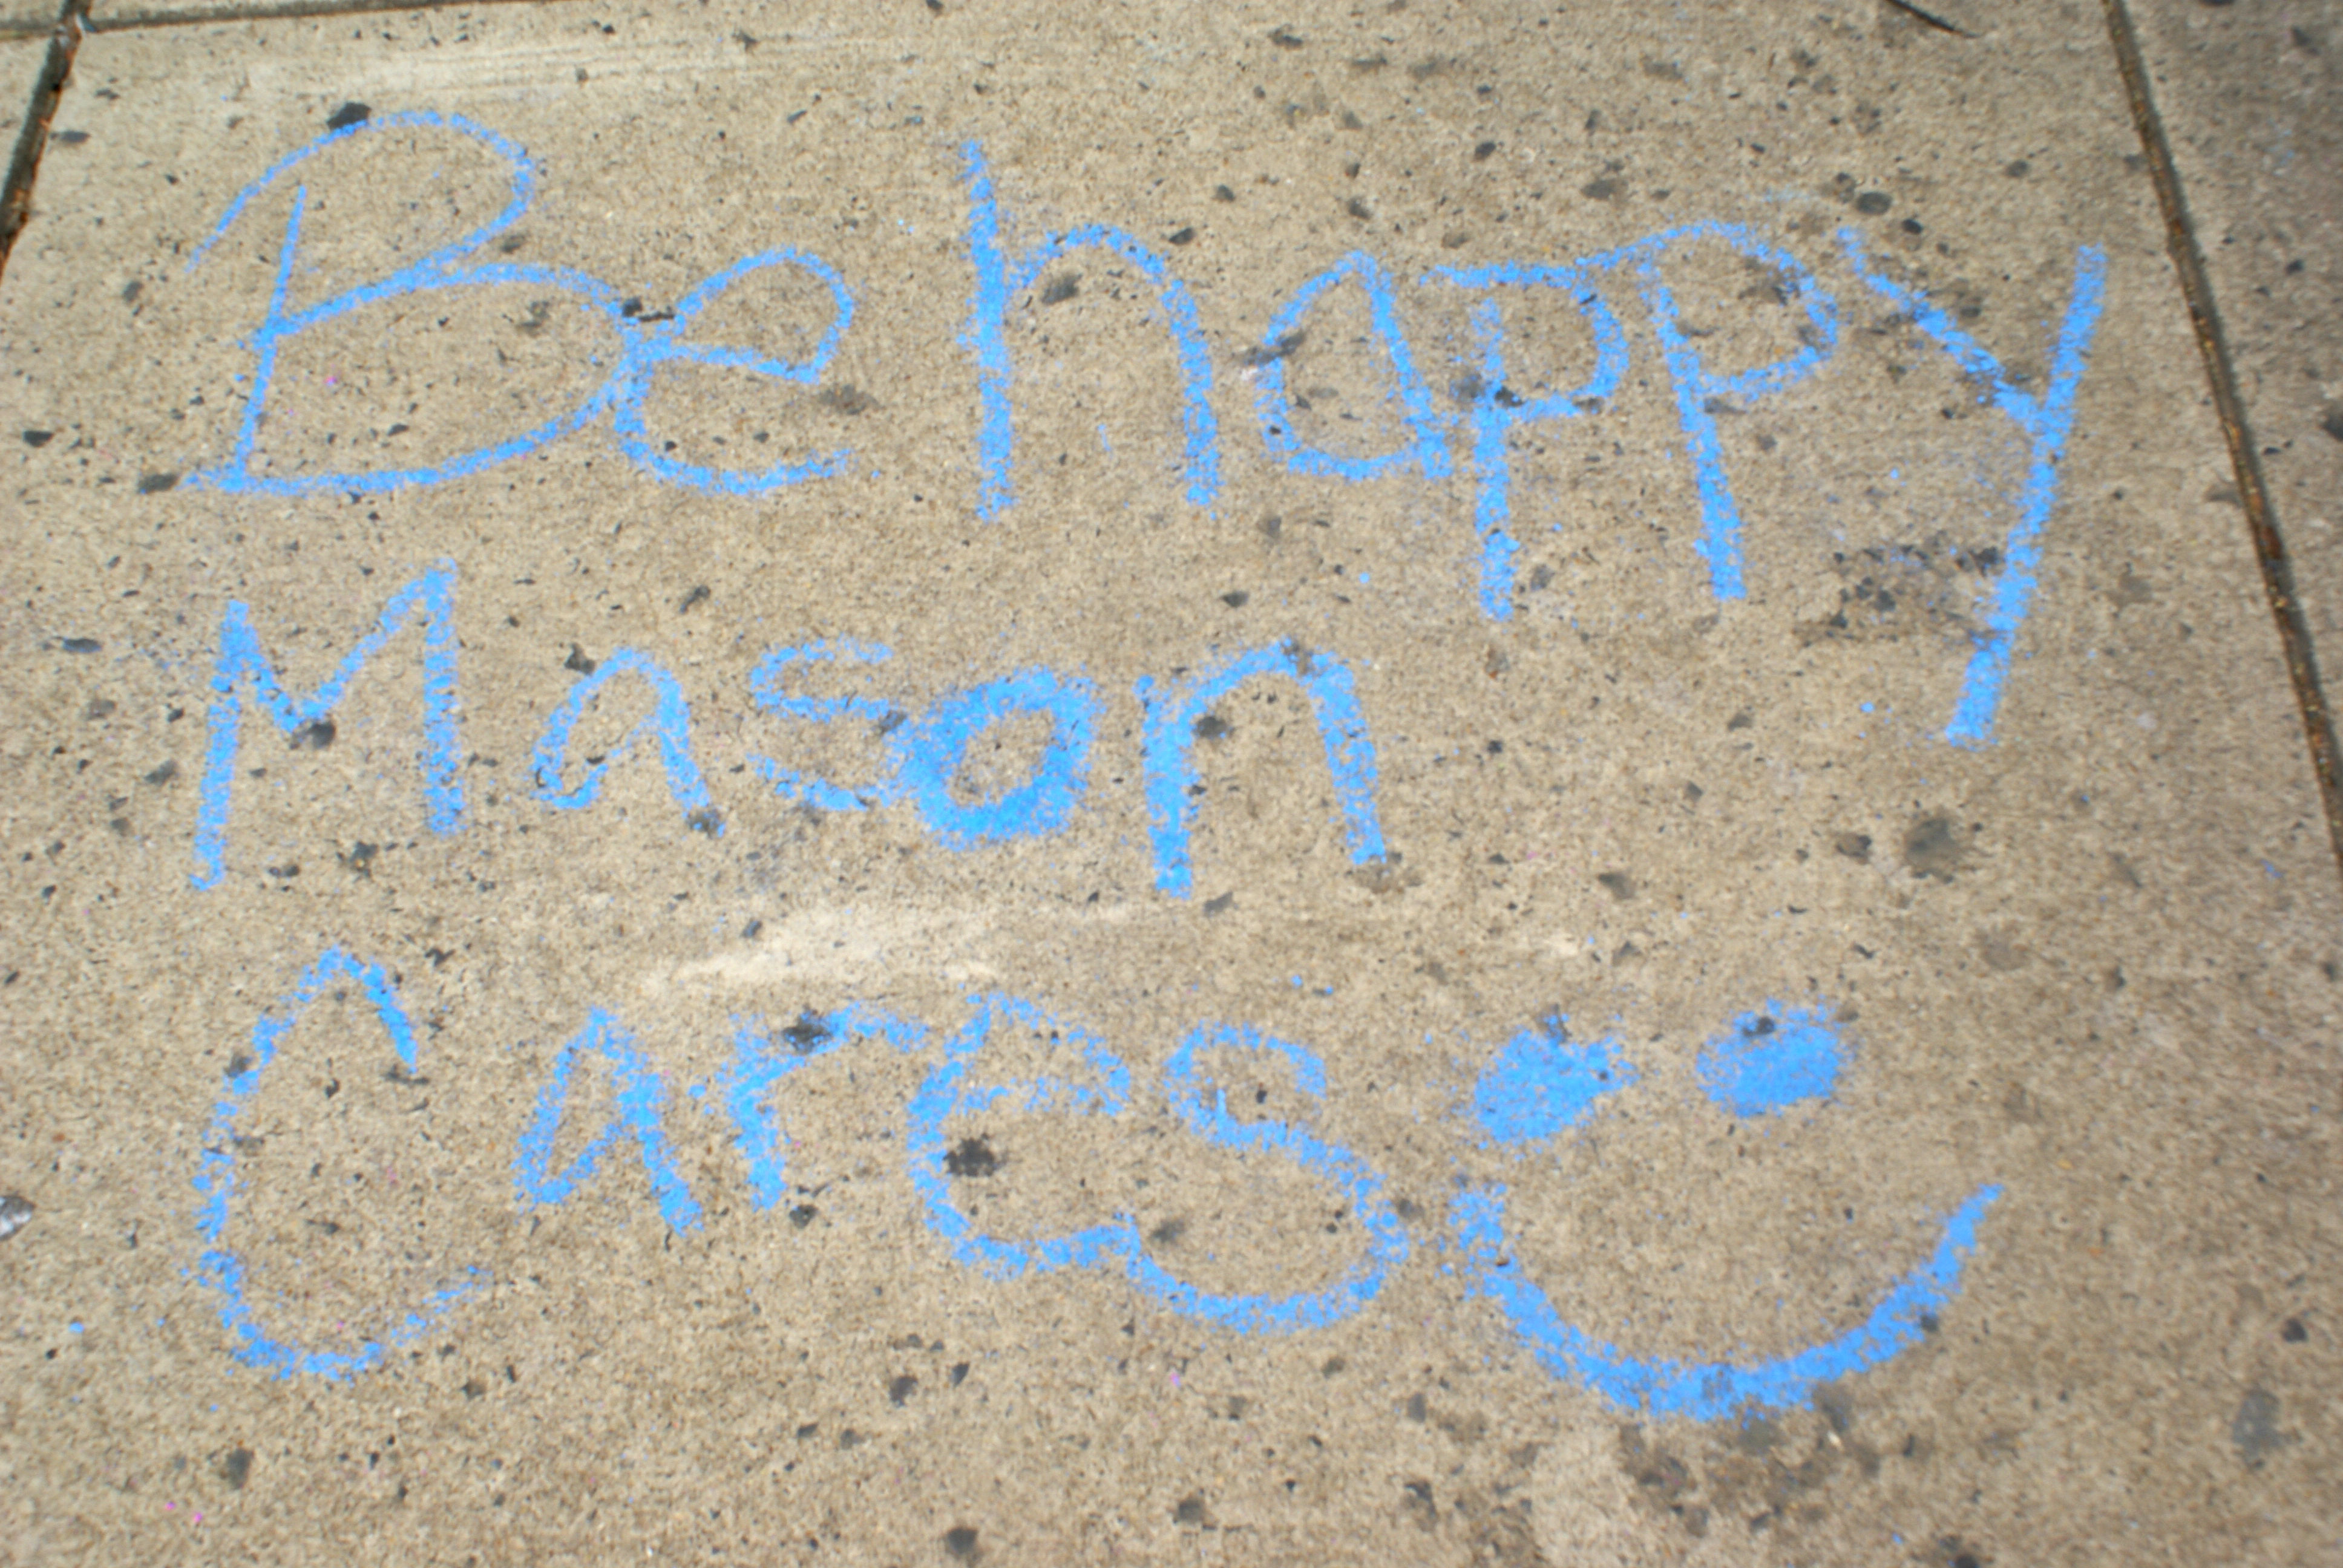 Be happy
Mason
Cares